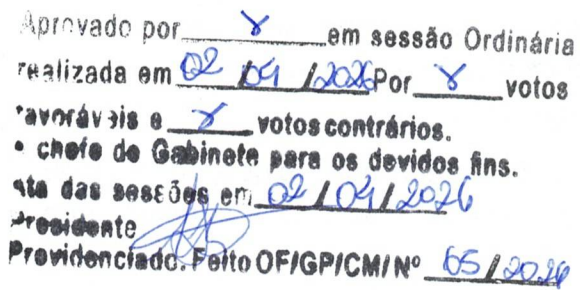 Aprovado por ɤ em sessão Ordinária
realizada em 02/04/2026 Por ɤ votos
favoráveis e ɤ votos contrários.
chefe de Gabinete para os devidos fins.
das sessões em 02/04/2026
Presidente
Providenciado. Feito OF/GP/CM/Nº 65/2026